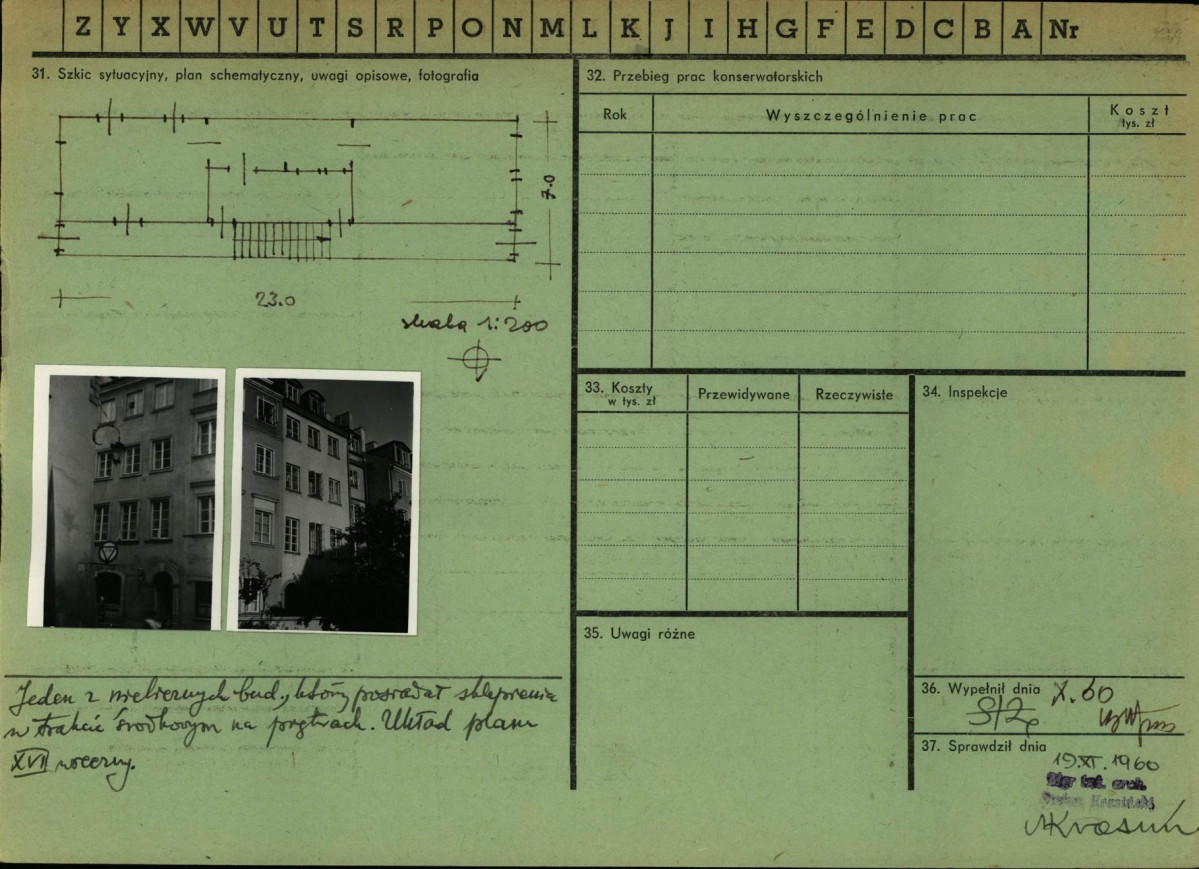 Z Y X W V U T S R P O N M L K J I H G F E D C B A Nr
31. Szkic sytuacyjny, plan schematyczny, uwagi opisowe, fotografia
7.0
23.0
skala 1:200
Jeden z nielicznych bud., który posiadał sklepienia
w trakcie środkowym na piętrach. Układ planu
XVII wieczny.
32. Przebieg prac konserwatorskich
Rok
Wyszczególnienie prac
Koszt
tys. zł
33. Koszty
w tys. zł
Przewidywane
Rzeczywiste
34. Inspekcje
35. Uwagi różne
36. Wypełnił dnia X.60
37. Sprawdził dnia
19.XI.1960
Mgr inż. arch.